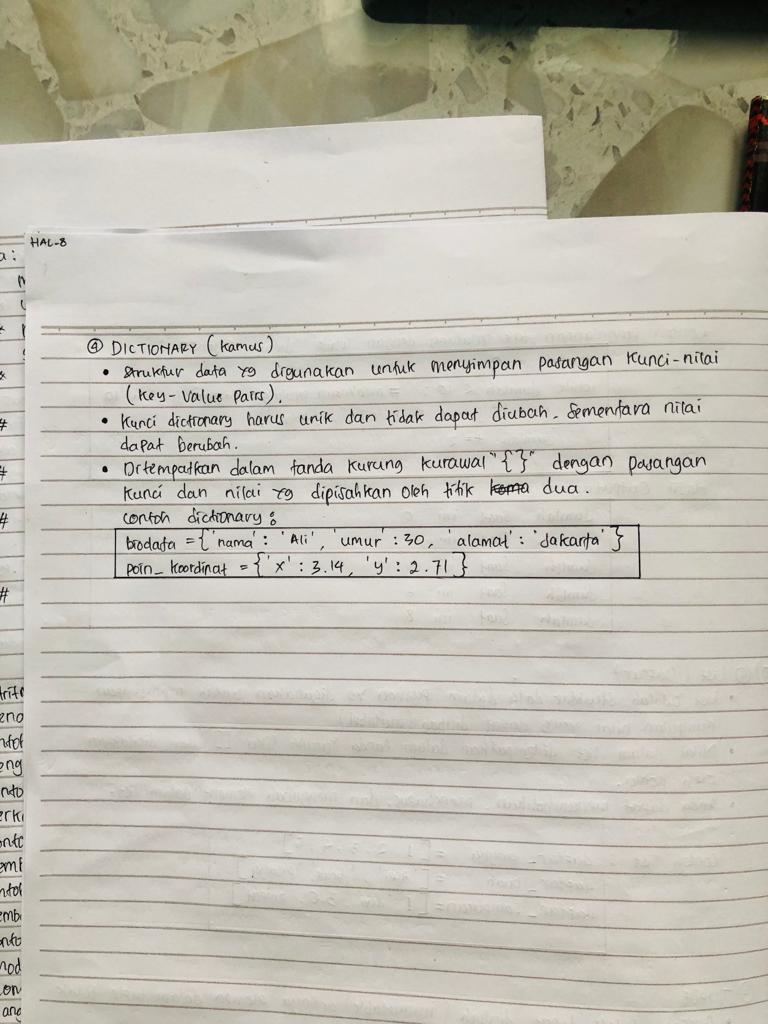 HAL-8
④ DICTIONARY (kamus)
• Struktur data yg digunakan untuk menyimpan pasangan kunci-nilai
(key-value pairs).
• Kunci dictionary harus unik dan tidak dapat diubah. Sementara nilai
dapat berubah.
• Ditempatkan dalam tanda kurung kurawal "{}" dengan pasangan
kunci dan nilai yg dipisahkan oleh titik koma dua.
contoh dictionary :
biodata = {'nama' : 'Ali', 'umur' : 30, 'alamat' : 'Jakarta'}
poin_koordinat = {'x' : 3.14, 'y' : 2.71}